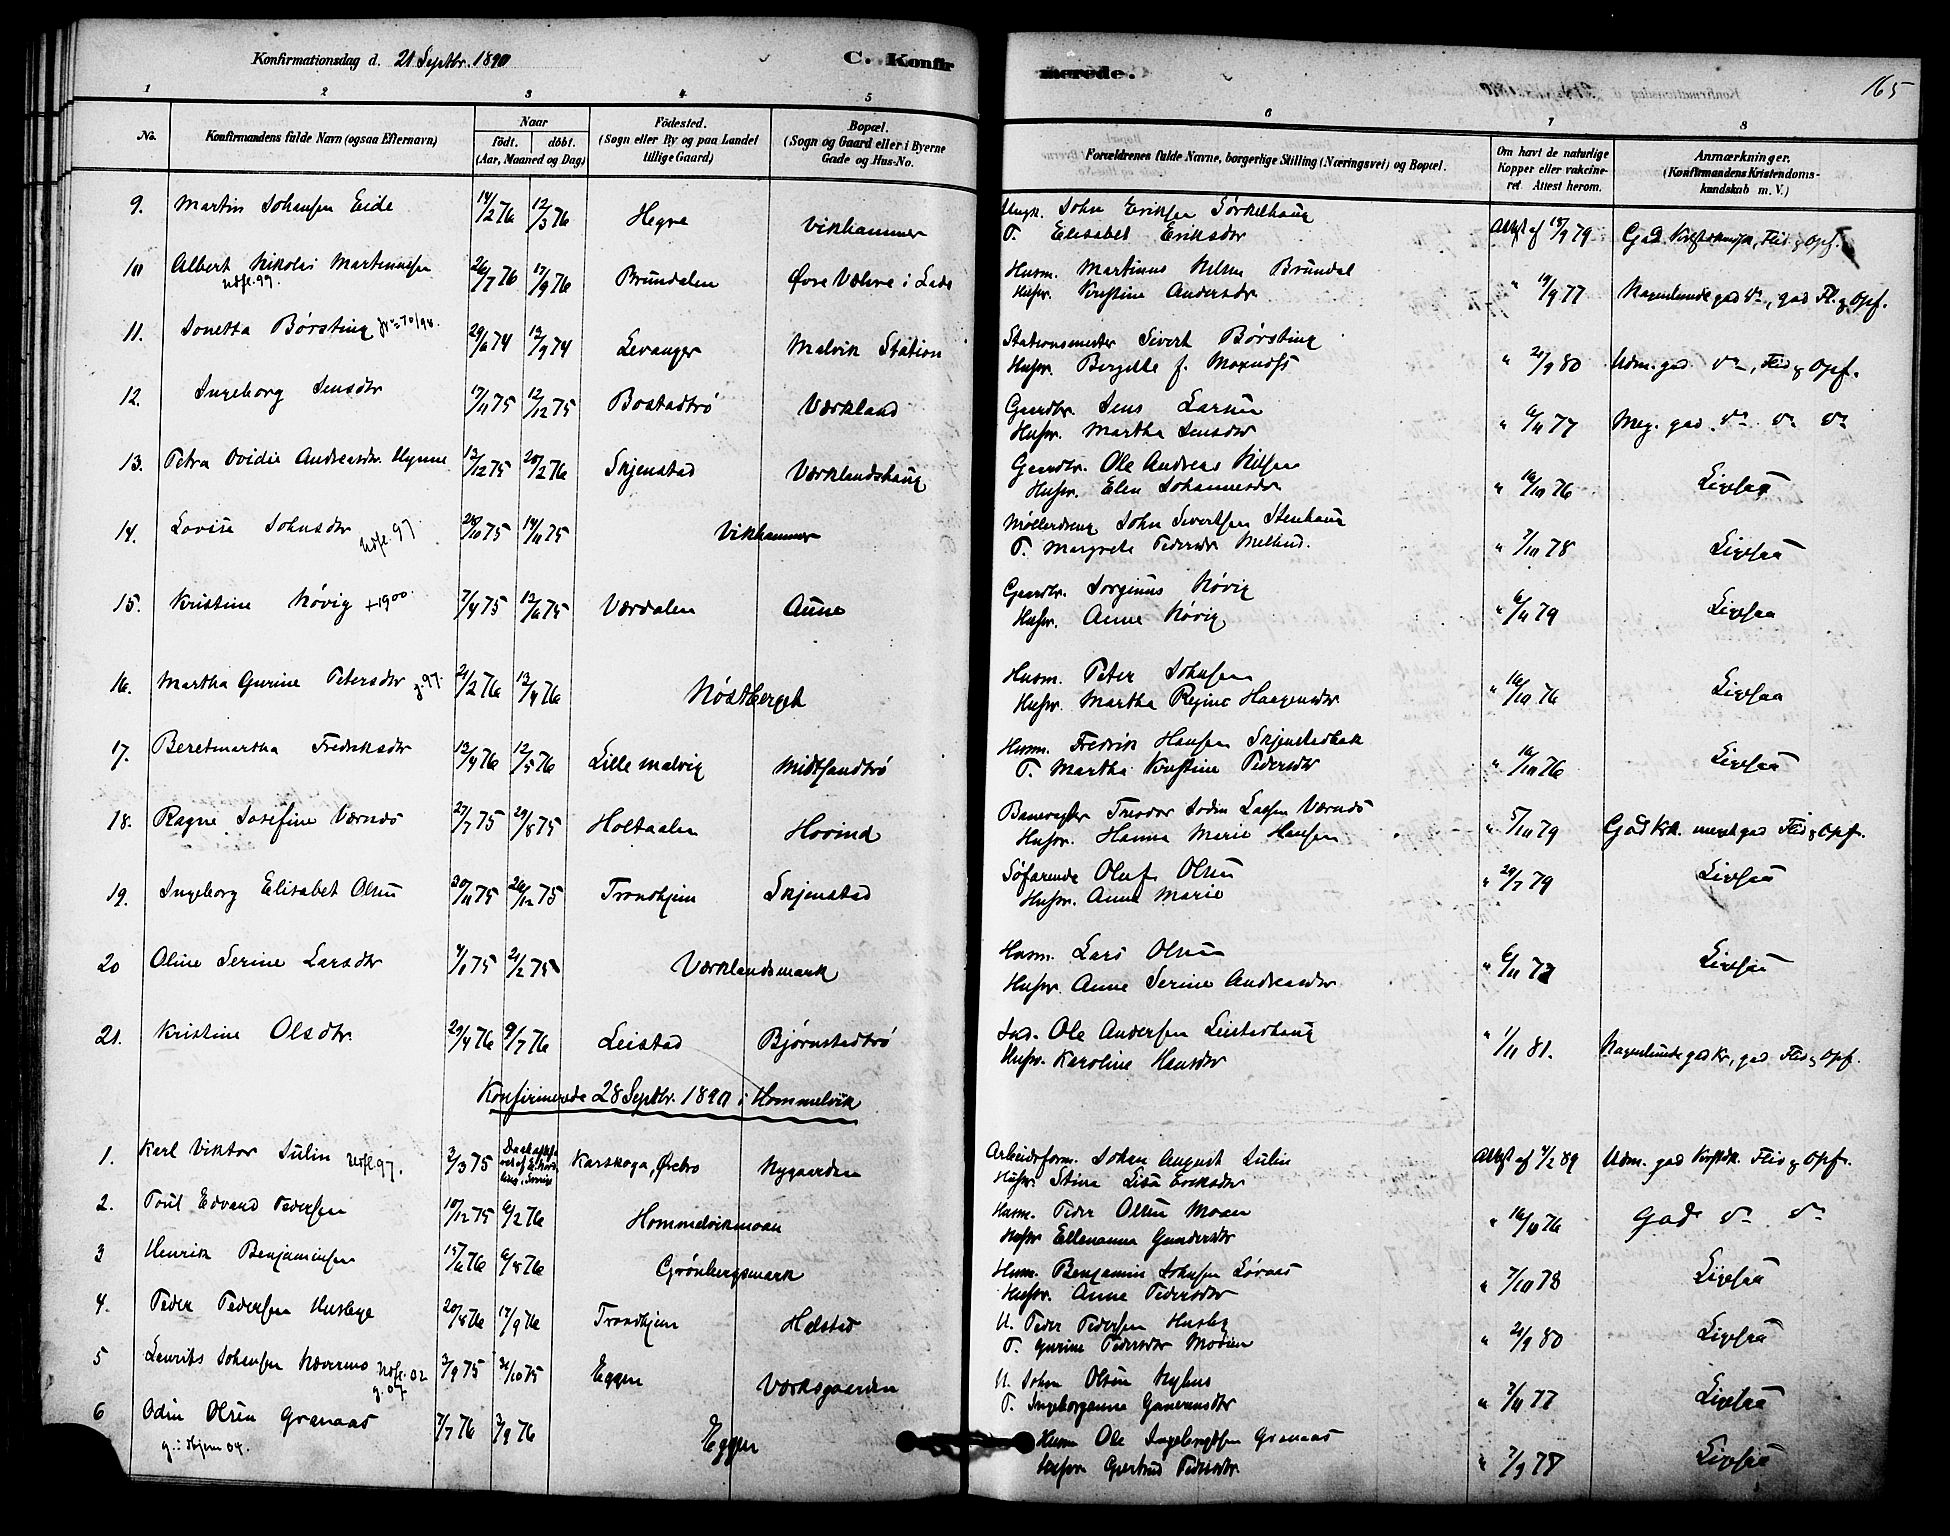 Konfirmationsdag d. 21 Septbr. 1890
C. Konfirmerede.
165
1 2 3 4 5 6 7 8
No.
Konfirmandens fulde Navn (ogsaa Efternavn)
Naar
født. døbt.
(Aar, Maaned og Dag)
Fødested.
(Sogn eller By og paa Landet
tillige Gaard)
Bopæl.
(Sogn og Gaard eller i Byerne
Gade og Hus-No.
Forældrenes fulde Navne, borgerlige Stilling (Næringsvei) og Bopæl.
Om havt de naturlige
Kopper eller vakcine-
ret. Attest herom.
Anmærkninger.
(Konfirmandens Kristendoms-
kundskab m. V.)
9. Martin Johansen Eide 14/2 76 12/3 76 Hegre Vikhammer
Ungk. John Eriksen
T. Elisabet Eriksdtr Attest af 18/9 79 God Flid & Opf.
10 Albert Nikolai Martinussen 26/7 76 17/9 76 Brundalen Øvre Være i Lade
Udfl. 97.
Husm. Martinus Nilsen Brundal
Husr. Kristine Andersdtr " 19/9 77 Nogenlunde god do, god Fl. & Opf.
11. Jonetta Børsting 29/6 74 19/9 74 Levanger Malvik Station
Stationsmester Sivert Børsting
Husr. Bergitte f. " 21/9 80 Udm. god do, Flid & Opf.
12. Ingeborg Jensdtr 17/11 75 12/12 75 Bostadtrø Værkland
Gaardbr. Jens Larsen
Husr. Martha Jensdtr " 6/11 77 Meg. god do do do
13. Petra Ovidie Andreasdtr. Hynne 12/12 75 20/2 76 Skjenstad Værklandshaug
Gaardbr. Ole Andreas Nilsen
Husr. Elen Johannesdtr " 16/10 76 Ligesaa
14. Lovise Johnsdtr Udfl. 97 28/10 75 14/11 75 Vikhammer
Møllerdreng John Sivertsen Stenhaug
T. Margrete Pedersdtr " 7/10 78 Ligesaa
15. Kristine Røvig +1900. 7/4 75 12/6 75 Værdalen Aune
Gaardbr. Jørginus Røvig
Husr. Anne Røvig " 6/11 79 Ligesaa
16. Martha Gurine Petersdtr g. 97. 21/2 76 12/4 76 Nøstberget
Husm. Peter Johnsen
Husr. Martha Regine Haagensdtr " 16/10 76 Ligesaa
17. Beretmartha Fredriksdtr 12/4 76 12/5 76 Lille malvig Midtsandtrø
Husm. Fredrik Hansen Skjenstadbak
T. Martha Kristine Pedersdtr " 16/10 76 Ligesaa
18. Ragne Josefine Værnes 27/7 75 29/8 75 Holtaalen Hovind
Banevogter Theodor Værnes
Husr. Hanna Marie Hansen " 5/10 79 God Krk. meget god Flid & Opf.
19. Ingeborg Elisabet Olsen 30/11 75 26/12 75 Trondhjem Skjenstad
Søfarende Oluf Olsen
Husr. Anne Marie " 29/7 79 Ligesaa
20 Oline Serine Larsdtr 4/1 75 21/2 75 Værklandsmark
Husm. Lars Olsen
Husr. Anne Serine Andreasdtr " 6/11 77 Ligesaa
21. Kristine Olsdtr. 29/4 76 9/7 76 Leistad Bjørnstadtrø
Ind. Ole Andersen Leistadhaug
Husr. Karoline Hansdtr " 1/11 81. Nogenlunde god Kr, god Flid & Opf.
Konfirmerede 28 Septbr. 1890 i Hommelvik
1. Karl Viktor Julin Udfl. 97. 3/3 75 Karskoga, Ørebro Nygaarden
Arbeidsform. Johan August Julin
Husr. Stina Lisa Eriksdtr Attest af 4/2 89 Udm. god Kristdk. Flid & Opf.
2. Poul Edvard Pedersen 10/12 75 6/2 76 Hommelvikmoan
Husm. Peder Olsen Moan
Husr Ellenanna Gundersdtr " 16/10 76 God do do
3 Henrik Benjaminsen 15/6 76 6/8 76 Grønbergsmark
Husm. Benjamin Johnsen
Husr. Anne Pedersdtr " 7/10 78 Ligesaa
4. Peder Pedersen Husbye 20/8 76 17/9 76 Trondhjem Halstad
U. Peder Pedersen Husby
T. Gurine Pedersdtr Moan " 21/9 80 Ligesaa
5 Laurits Johansen Udfl. 02 3/9 75 31/10 75 Eggen Værksgaarden
g. 07.
U. Johan Olsen Nyhus
T. Ingeborganna Gunerusdtr " 2/11 77 Ligesaa
6 Odin Olsen Granaas 7/7 76 3/9 76 Eggen
Husm Ole Ingebrigtsen Granaas
Husr Gjertrud Pedersdtr " 7/9 78 Ligesaa